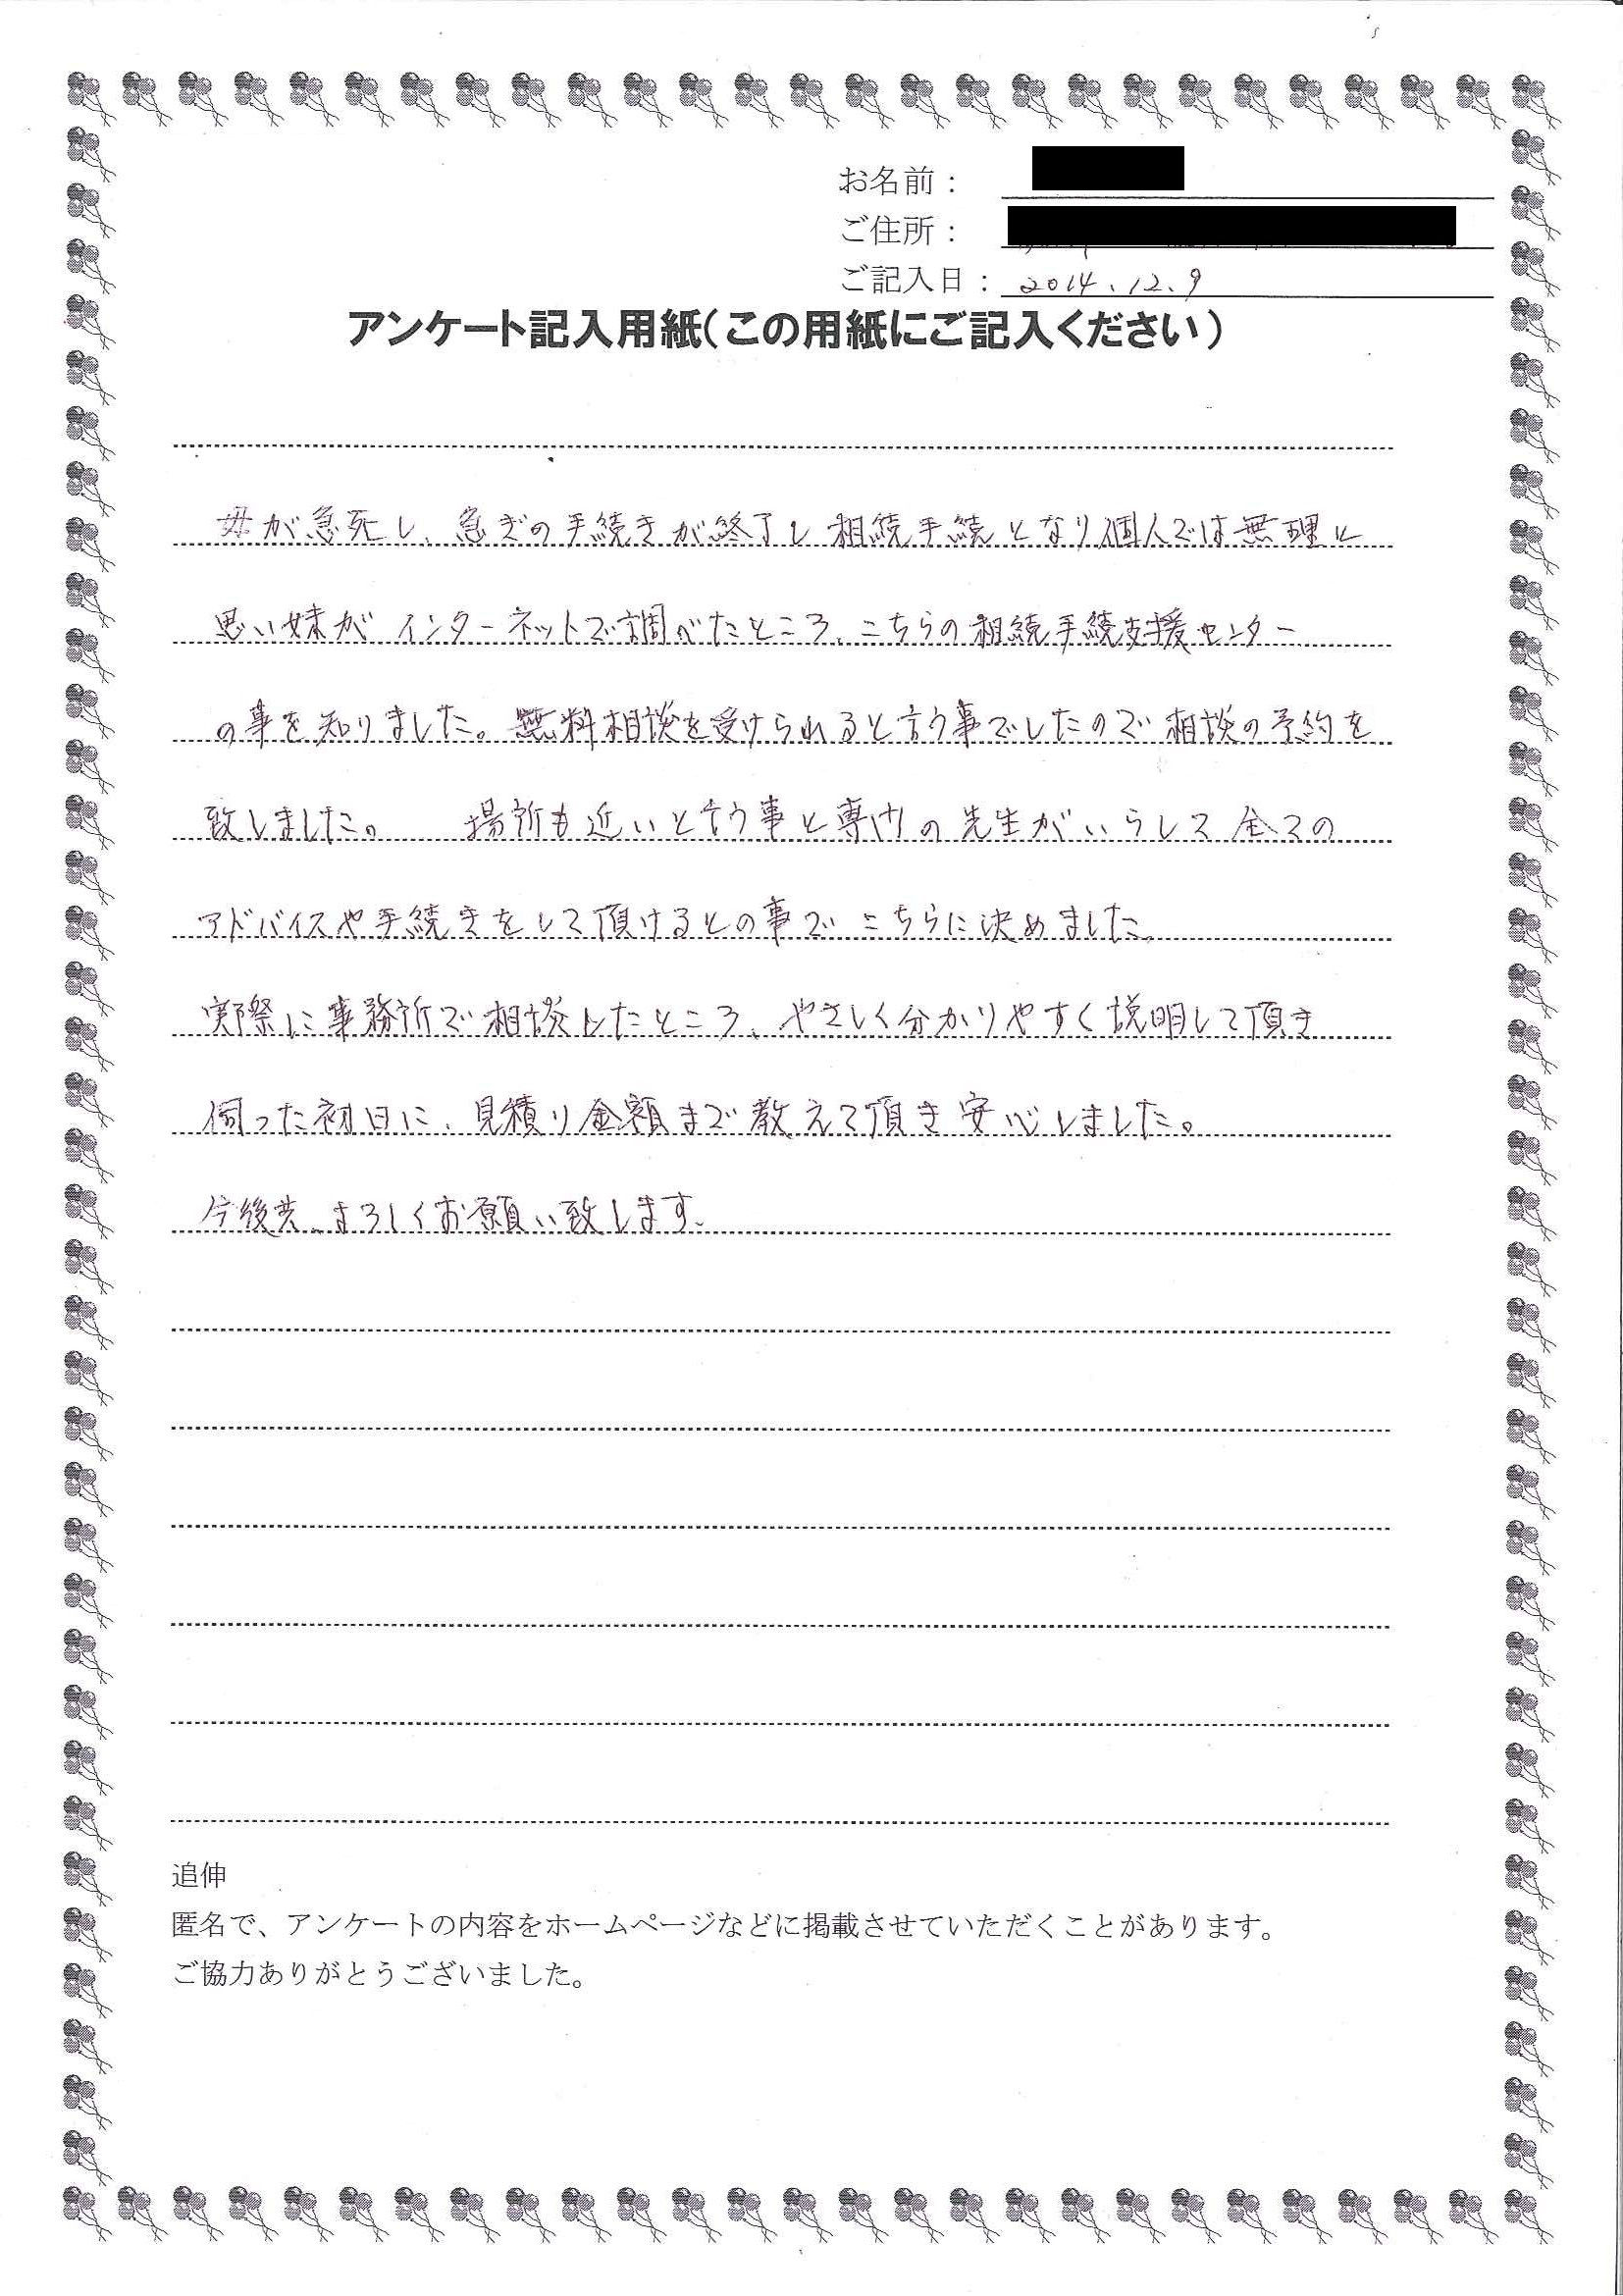 お名前：
ご住所：
ご記入日： 2014.12.9
アンケート記入用紙（この用紙にご記入ください）
母が急死し、急ぎの手続きが終了し相続手続となり個人では無理と
思い妹がインターネットで調べたところ、こちらの相続手続支援センター
の事を知りました。無料相談を受けられると言う事でしたので相談の予約を
致しました。 場所も近いと言う事と専門の先生がいらして全ての
アドバイスや手続きをして頂けるとの事でこちらに決めました。
実際に事務所で相談したところ、やさしく分かりやすく説明して頂き
伺った初日に、見積り金額まで教えて頂き安心しました。
今後共、よろしくお願い致します。
追伸
匿名で、アンケートの内容をホームページなどに掲載させていただくことがあります。
ご協力ありがとうございました。